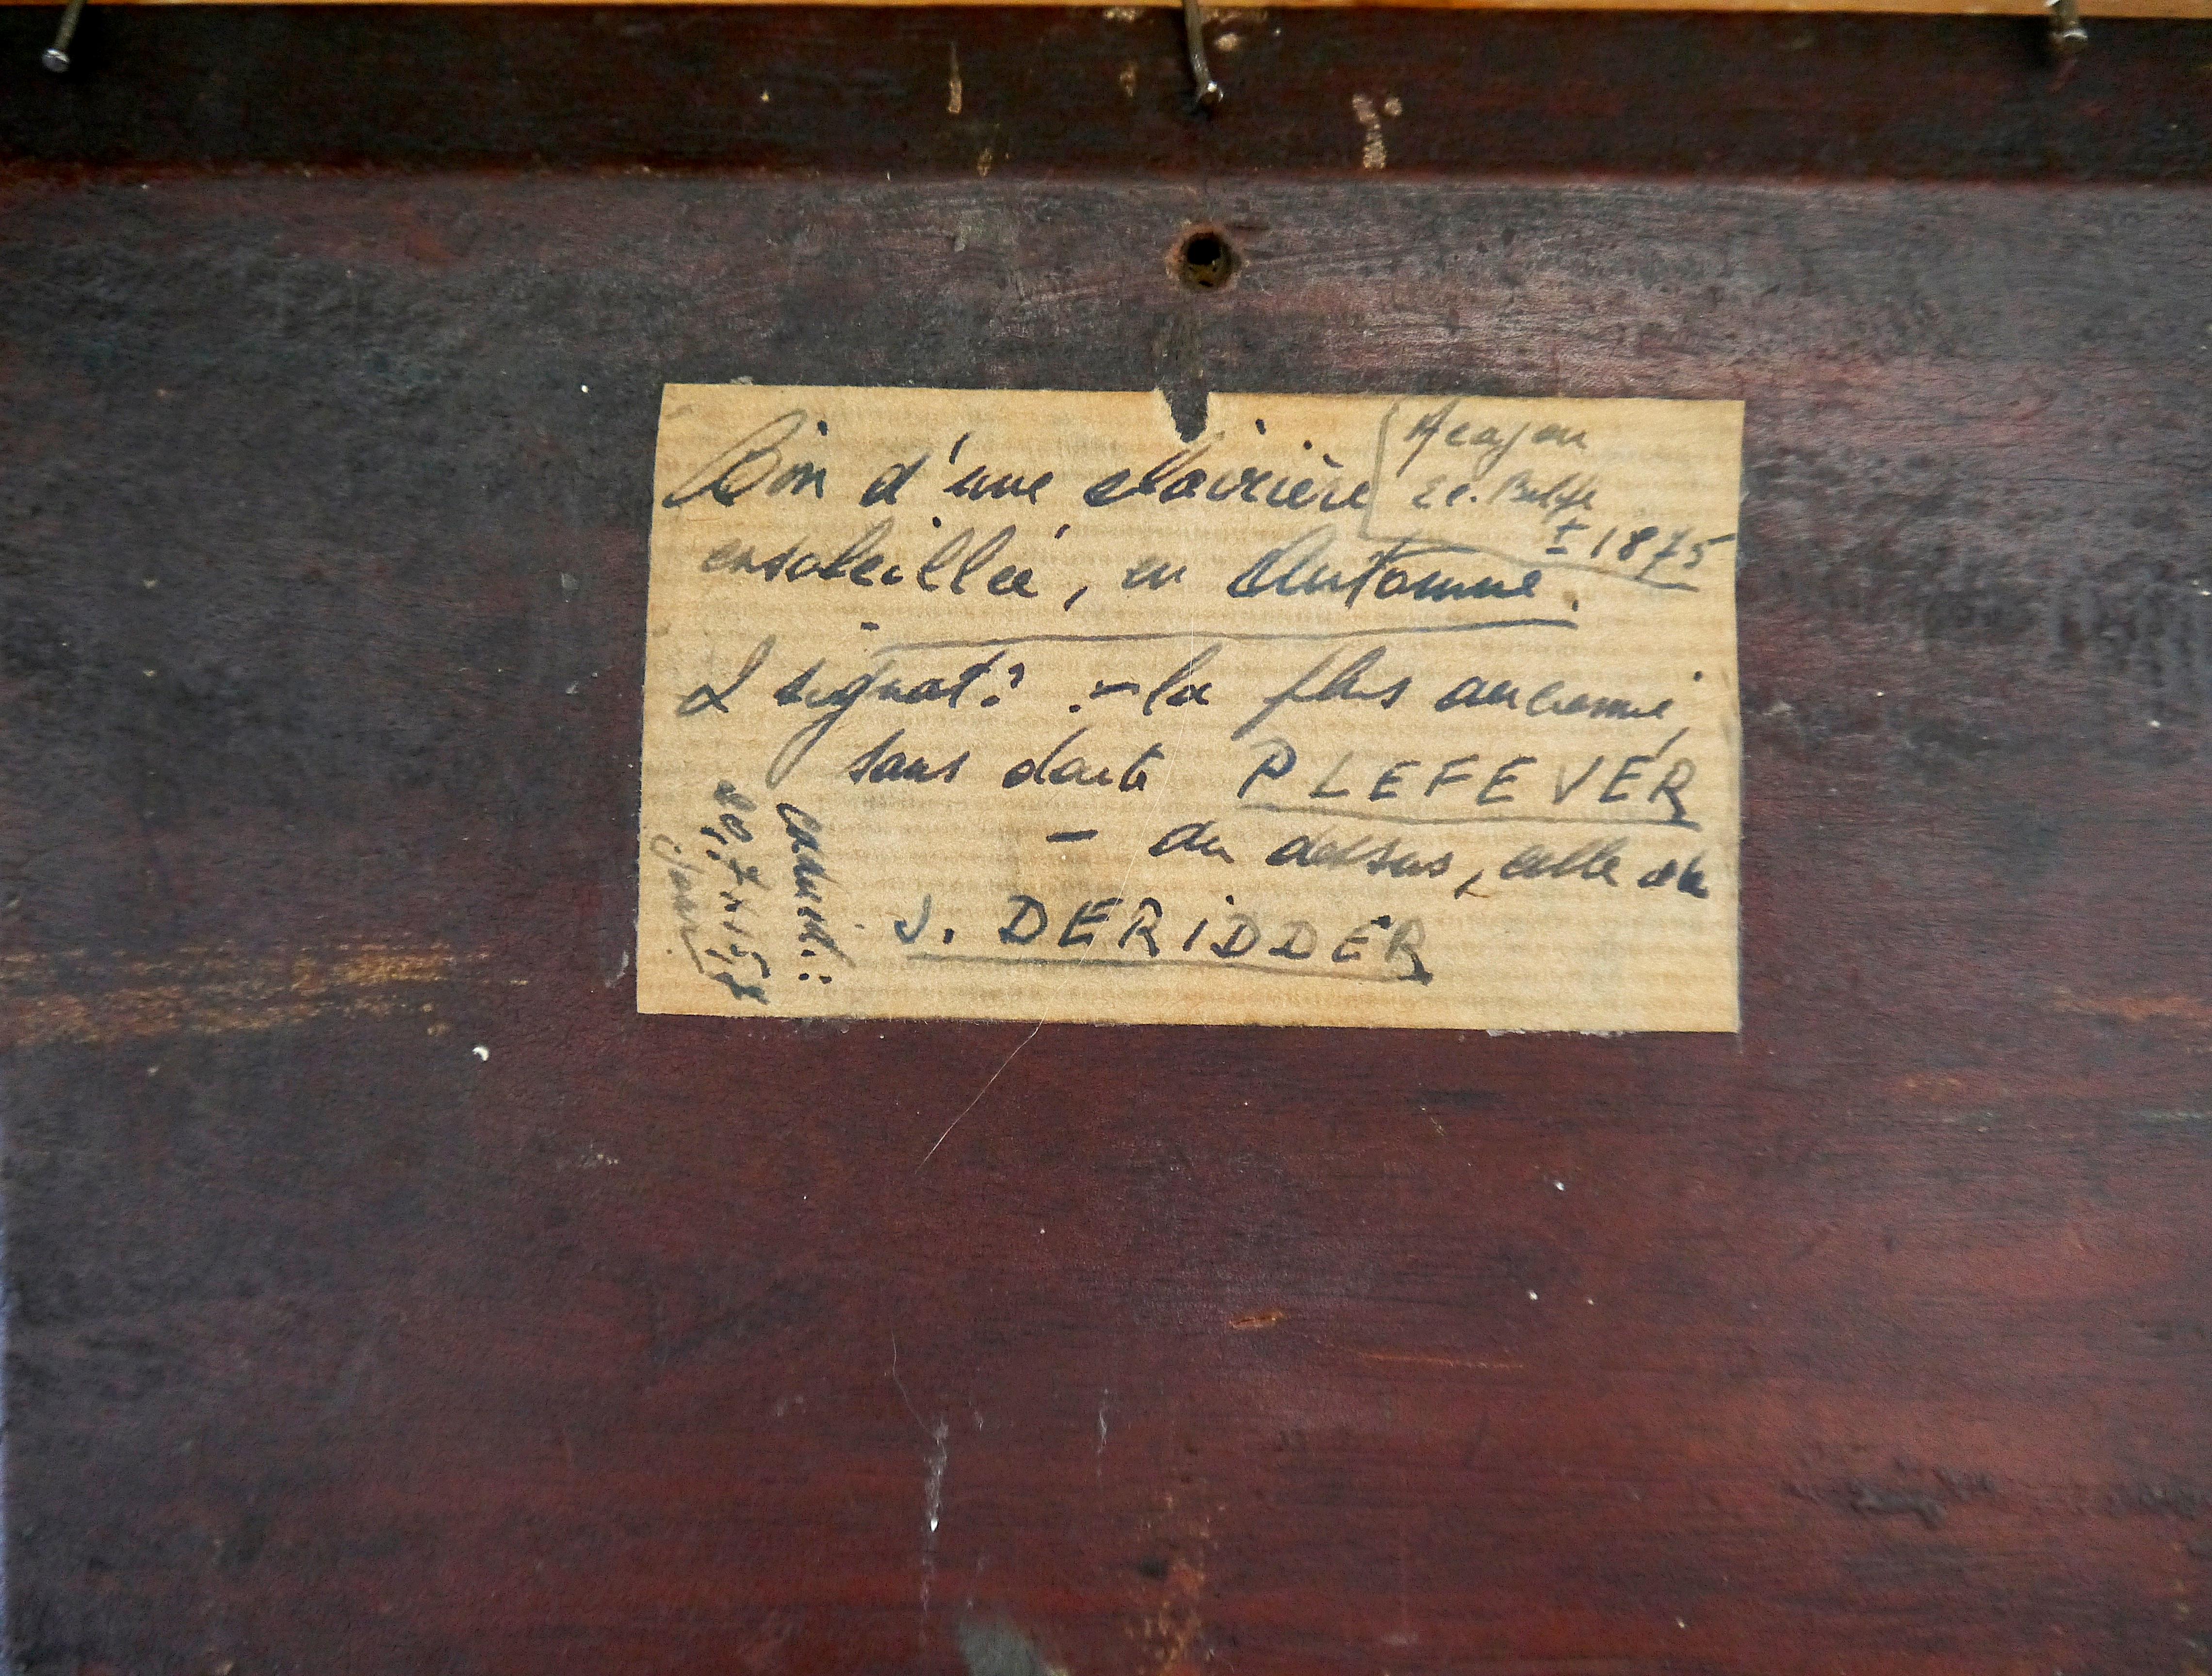 d'une clairière
ensoleillée, en Automne.
Acajou
Ec. Belge
± 1875
2 signat: - la plus ancienne,
sans doute P LEFEVER
- au dessus, celle de
J. DERIDDER